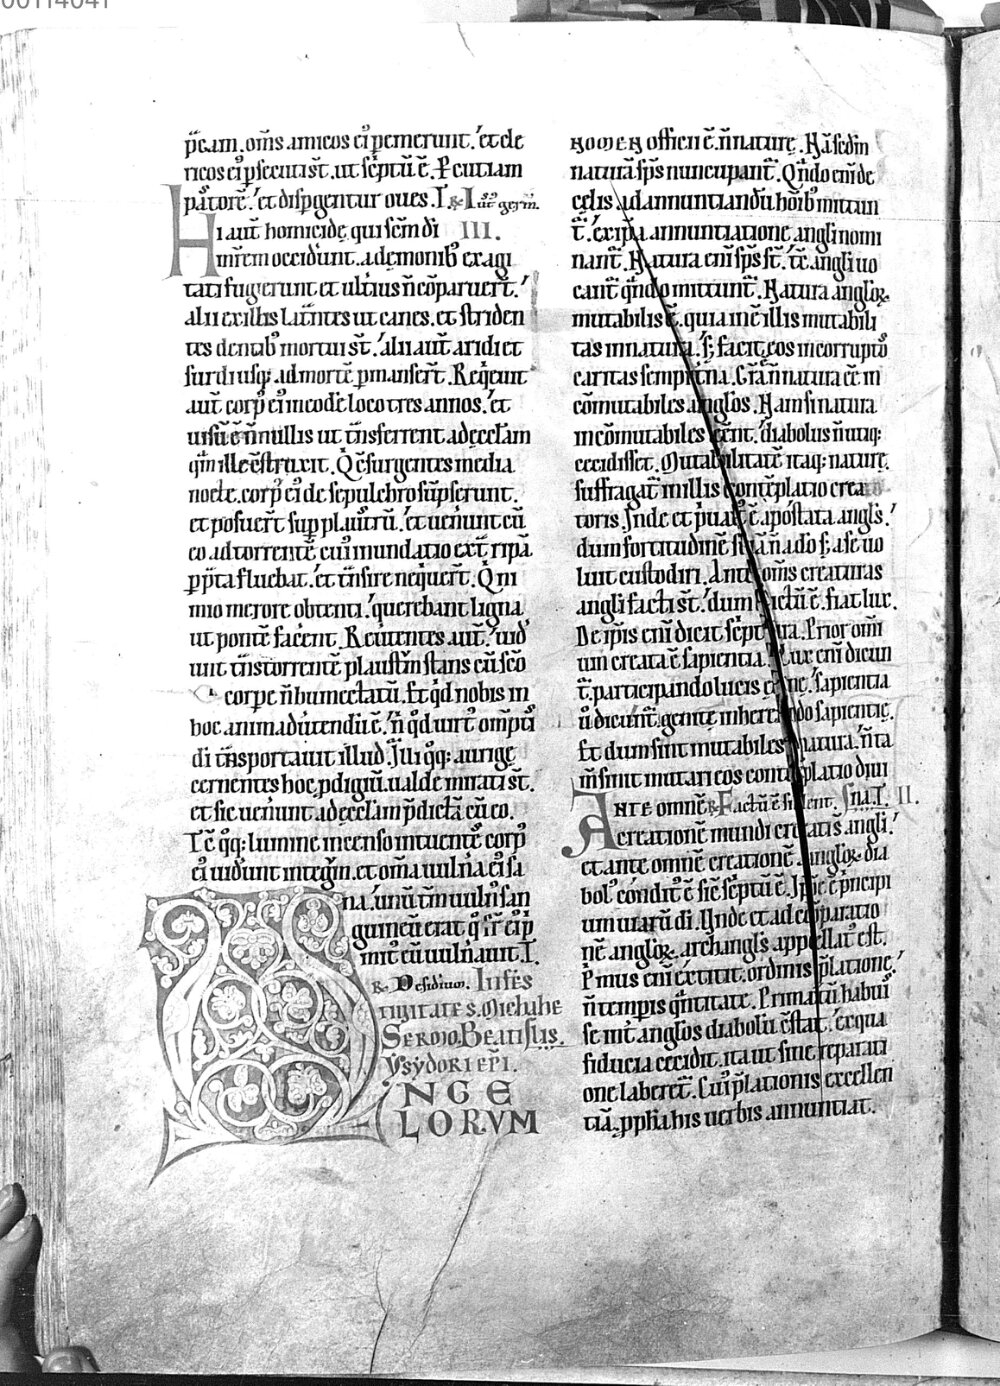 p̄eam. om̄s amicos ei᷒ pemerunt. et cle
ricos ei᷒ psecuti st̄. ut sc̄ptū ē. Pcutiam
pastorē. et dispgentur oues. I. ℟
Hi aut̄ homicidę qui sc̄m di III.
mr̄em occidunt. ademonib; exagi
tati fugerunt et ultius n̄ cōparuert̄.
alii ex illis latntes ut canes. et striden
tes dentib; mortui st̄. alii aut̄ aridi et
surdi usq; ad mortē pmansert̄. Reqeuit
aut̄ corp᷒ ei᷒ in eodē loco tres annos. et
uisū ē n̄nullis ut tn̄sferrent ad ęcclam
qm̄ ille ēstruxit. Q ēsurgentes media
nocte. corp᷒ ei᷒ de sepulchro sūpserunt.
et posuert̄ sup plaustrū. et uenunt cū
eo ad torrentē. cui᷒ inundatio ext̄ ripā
ppta fluebat. et tn̄sire nequert̄. Q ni
mio merore obtenti. querebant ligna
ut pontē facent. Reuntes aut̄. uid
unt tn̄s torrentē plaustm̄ stans cū sc̄o
corpe n̄ humectatū. Et qd nobis in
hoc animaduitendū ē. n̄ qd iunt̄ omp̄tı
di tn̄sportauit illud. Illi qq; aurigę
cernentes hoc pdigiū ualde mirati st̄.
et sic uenunt ad ęcclam pdictā cū eo.
Tc̄ qq; lumine incenso intuentē corp᷒
ei᷒ uidunt integm̄. et om̄a uulna ei᷒ sa
na. unū tm̄ uuln᷒ san
guineū erat q᷒ fr̄ ei᷒ p
mit᷒ eū uulnauit. I.
℟. Desidium. In fes
tiuitate s. Michahe
Sermo. Beati
Ysydori epi.
NGE
LORVM
nomen officii ē. n̄ naturę. Nā scdm
naturā sps nuncupant̄. Qn̄do eni de
cęlis ad annuntiandū hōib; mittun
t̄. ex ipsa annuntiatione angli nomi
nant̄. Natura eni sps st̄. tc̄ angli uo
cant̄ qn̄do mittunt̄. Natura angloꝝ
mutabilis ē. quia inē illis mutabili
tas in natura. s; facit eos incorruptos
caritas sempitna. Gr̄a n̄ natura ēē in
cōmutabiles anglos. Nam si natura
incōmutabiles eēnt. diabolus n̄ utiq;
cecidisset. Mutabilitatē itaq; naturę.
suffragat̄ in illis contēplatio crea
toris. Inde et puat᷒ ē apostata angls.
dum fortitudinē suā n̄ a do s; a se uo
luit custodiri. Ante om̄s creaturas
angli facti st̄. dum dictū ē. fiat lux.
De ipsis eni dicit sc̄ptura. Prior omi
um creata ē sapientia. Lux eni dicun
t̄. participando lucis ętne. sapientia
ū dicunt̄. genite inherendo sapientię.
Et dum sint mutabiles natura. n̄ ta
m̄ sinit mutari eos contēplatio diui
na. I. II.
Ante omnē ℟ Factū ē silent.
creationē mundi creatis angli.
et ante omnē creationē angloꝝ dia
bol᷒ condit᷒ ē sic sc̄ptū ē. Ipse ē p̄ncipi
um uiarū di. Unde et ad cōparatio
nē angloꝝ. archangls appellat᷒ est.
P̄mus eni extitit. ordinis p̄latione.
n̄ tempis qn̄titate. Primatū habui
se int̄ anglos diabolū ēstat. ex qua
fiducia cecidit. ita ut sine reparati
one laberet̄. Cui᷒ p̄lationis excellen
tiā. pphia his uerbis annuntiat.